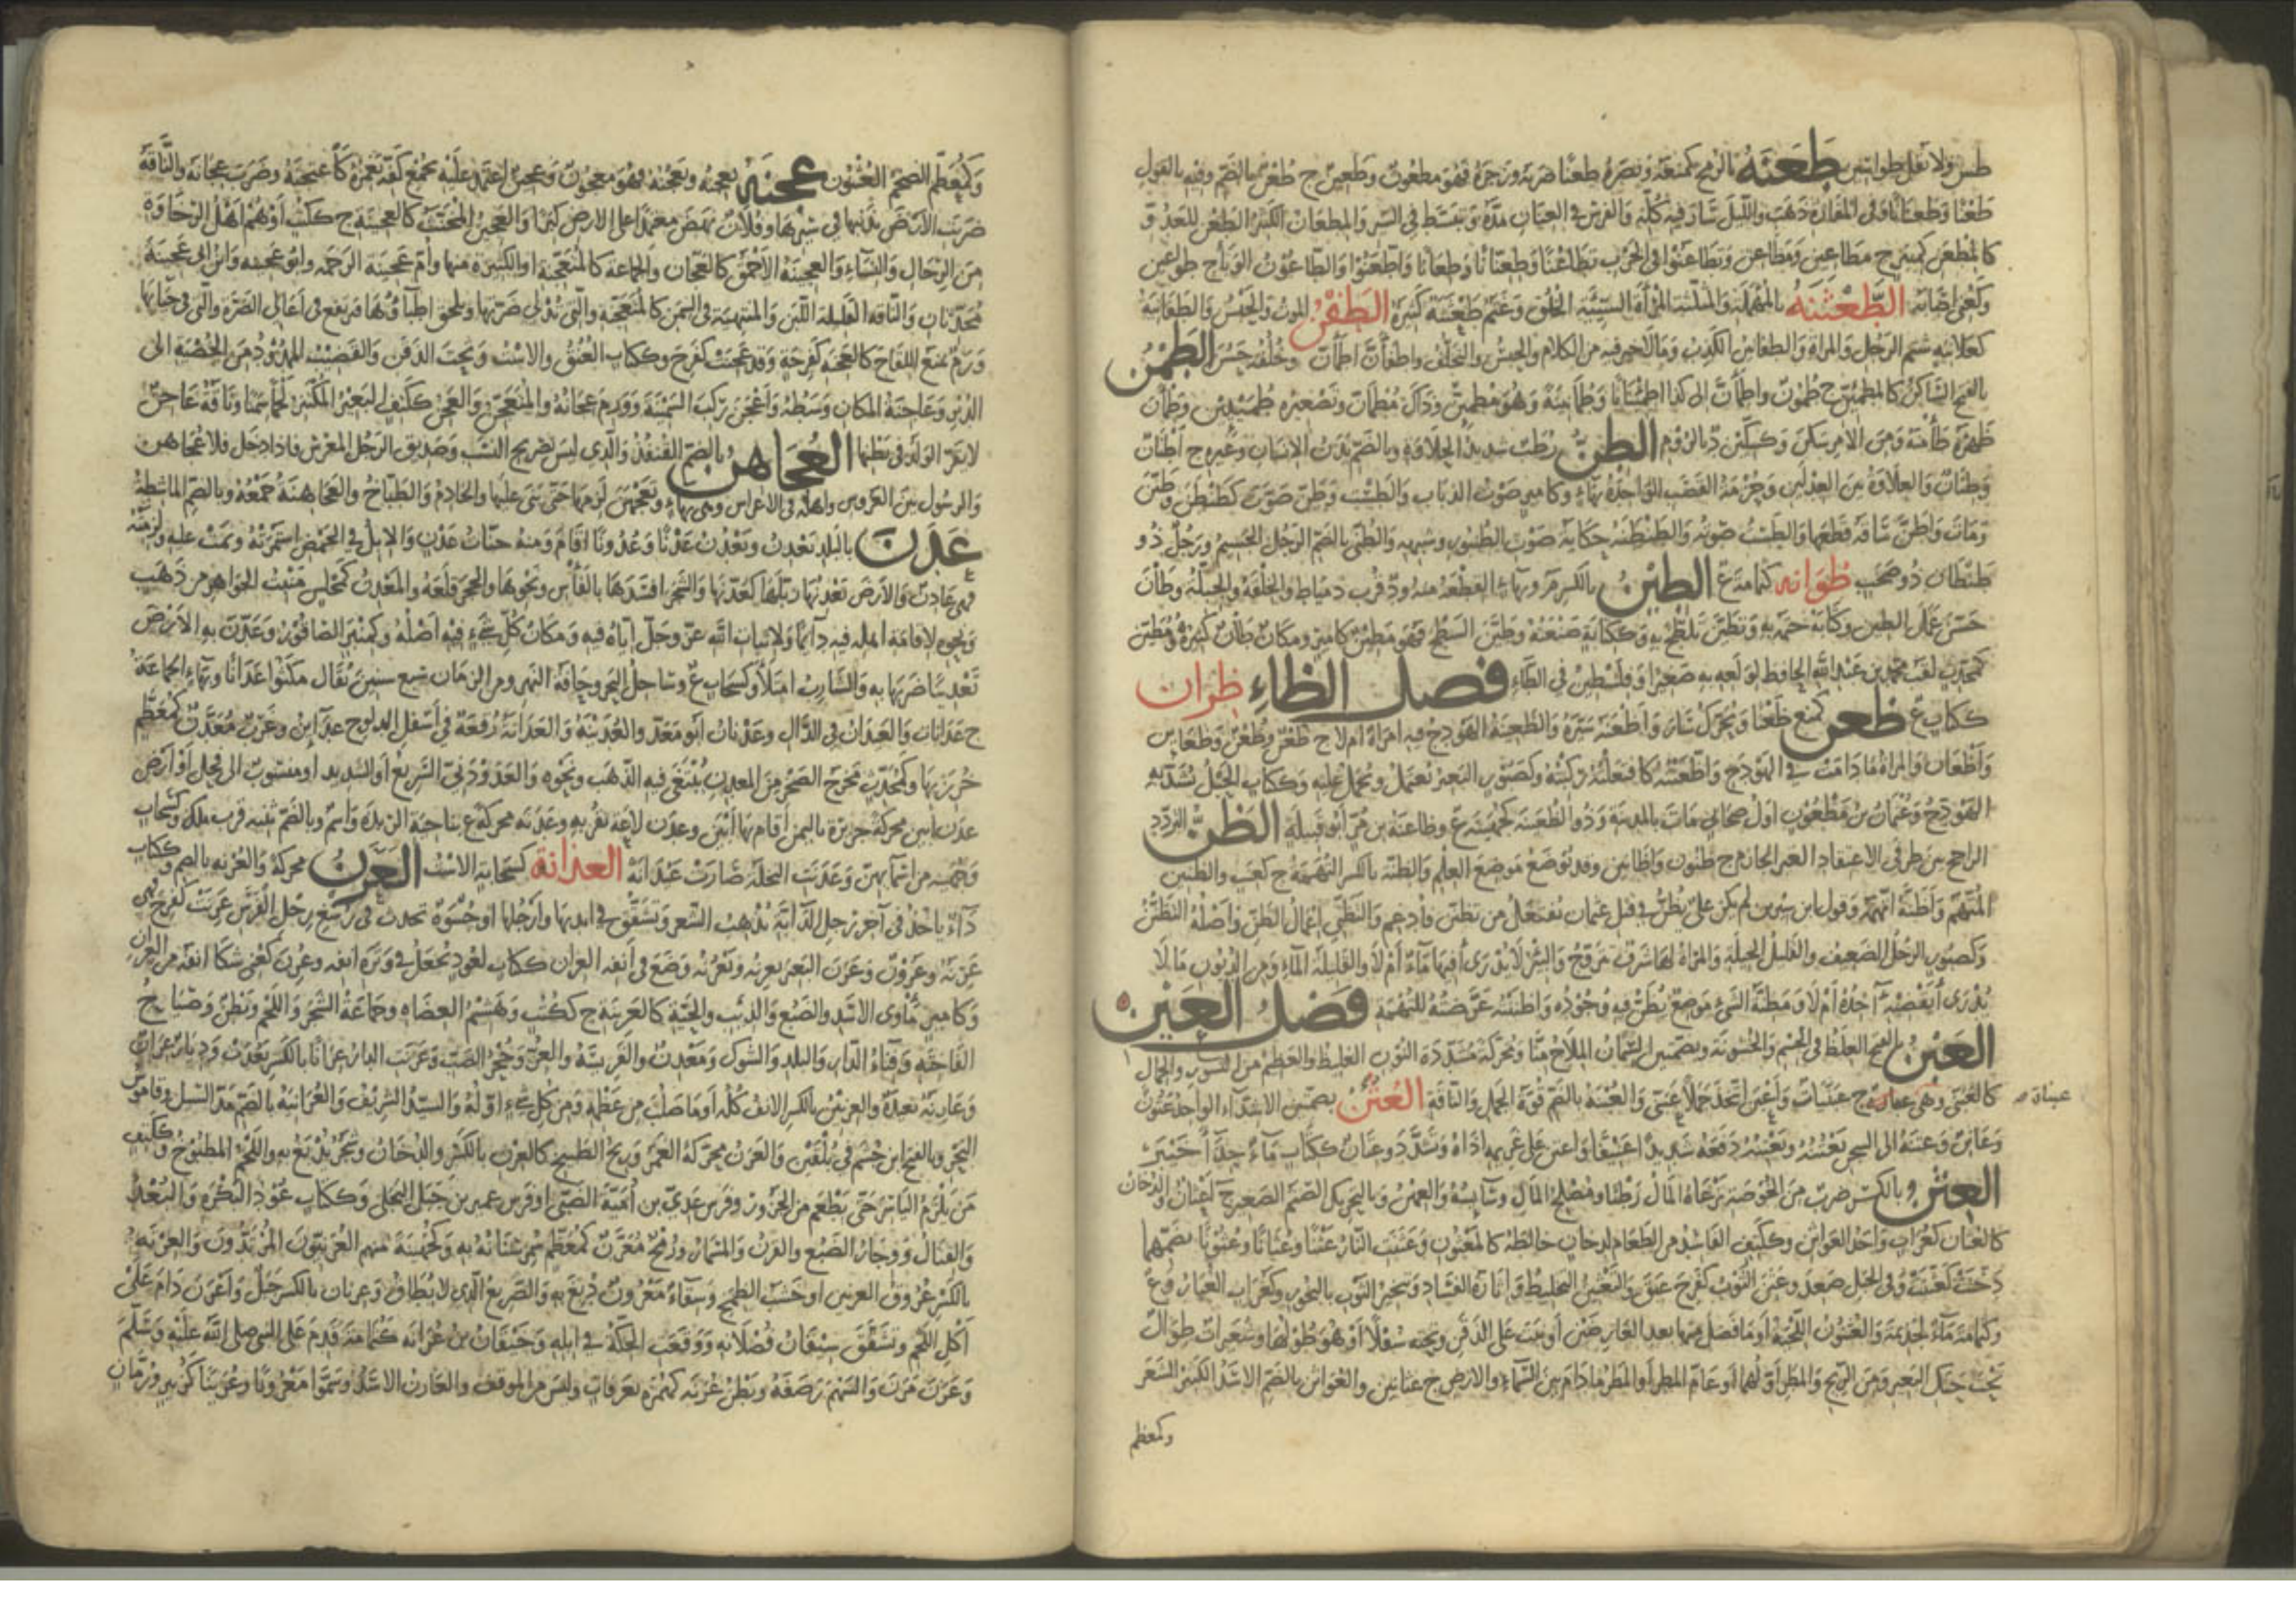 طس ولا تقل طواسين طَعَنَهُ بالرمح كمنعه ونصره طعنا ضربه وزجره فهو مطعون وطعين ج طعن بالضم وفيه بالقول
طعنا وطعنانا وفى المفازة ذهب والليل سار فيه كله والفرس فى العنان مدّه وتبسط فى السير والمطعان الكثير الطعن للعدو
كالمطعن كمنبر ج مطاعين ومطاعن وتطاعنوا فى الحرب تطاعنا وطعنانا واطعنوا والطاعون الوباء ج طواعين
وكعنى اصابه الطعثنة بالمهملة والمثلثة المرأة السيئة الخلق وغنم طعثنة كثيرة الطفن الموت والحبس والطفانية
كعلانية شتم الرجل والمرأة والطفانين الكذب وما لا خير فيه من الكلام والحبس والتخلف واطفأن اطمأن وخلقه حسن الطمن
بالفتح الساكن كالمطمئن ج طمون واطمأن الى كذا اطمئنانا وطمأنينة وهو مطمئن وذاك مطمأن وتصغيره طميئين وطمأن
ظهره طأمنه ومن الامر سكن الطن رطب شديد الحلاوة وبالضم بدن الانسان وغيره ج اطنان
وطنان والعلاوة بين العدلين وحزمة القصب الواحدة بهاء وكامير صوت الذباب والطست وطن صوت كطنطن وطنن
ومات واطن ساقه قطعها والطست صوته والطنطنة حكاية صوت الطنبور وشبهه والطنى بالضم الرجل الجسيم ورجل ذو
طنطان ذو صخب طوانه كثمامة ع الطين بالكسر م وبهاء القطعة منه ود قرب دمياط والخلقة والجبلة وطان
حسن عمل الطين وكتابه ختمه به وتطين تلطخ به وككتابة صنعته وطين السطح فهو مطين كامير ومكان طان كثيره ومطين
كمحدث لقب محمد بن عبد الله الحافظ لولعه به صغيرا وفلسطين فى الطاء فصل الظاء ظران
ككتاب ع ظعن كمنع ظعنا ويحرك سار واظعنه سيره والظعينة الهودج فيه امرأة ام لا ج ظعن وظعن وظعاين
واظعان والمرأة ما دامت فى الهودج واظعنته كافتعلته ركبته وكصبور البعير يعتمل ويحمل عليه وككتاب الحبل يشد به
الهودج وعثمان بن مظعون اول صحابى مات بالمدينة وذو الظعينة كجهينة ع وظاعنة بن مر ابو قبيلة الظن التردد
الراجح بين طرفى الاعتقاد الغير الجازم ج ظنون واظانين وقد توضع موضع العلم والظنة بالكسر التهمة ج كعنب والظنين
المتهم واظنه اتهمه وقول ابن سيرين لم يكن على يظن فى قتل عثمان يفتعل من تظنن فادغم والتظنى اعمال الظن واصله التظنن
وكصبور الرجل الضعيف والقليل الحيلة والمرأة لها شرف تزوج والبئر لا يدرى أفيها ماء ام لا والقليلة الماء ومن الديون ما لا
يدرى أيقضيه آخذه ام لا ومظنة الشئ موضع يظن فيه وجوده واظننته عرضته للتهمة فصل العين
العبن بالفتح الغلظ فى الجسم والخشونة وبضمتين السمان الملاح منا ومحركة مشددة النون الغليظ والعظيم من النسور والجمال
كالعبنى وهى عبناة ج عبنيات واعبن اتخذ جملا عبنى والعبنة بالضم قوة الجمل والناقة العتن بضمتين الاشداء الواحد عتون
عبناة صح
وعاتن وعتنه الى السجن يعتنه ويعتنه دفعه شديدا عنيفا واعتن على غريمه اذاه وتشدد وعتان ككتاب ماء حذاء خبير
العثن بالكسر ضرب من الخوصة ترعاه المال رطبا ومصلح المال وسايسه والعهن وبالتحريك الصنم الصغير ج اعثان والدخان
كالعثان كغراب واحد العواثن وككتف الفاسد من الطعام لدخان خالطه كالمعثون وعثنت النار عثنا وعثانا وعثونا بضمهما
دخنت كعثنت وفى الجبل صعد وعثن الثوب كفرح عبق والتعثين التخليط واثارة الفساد وتبخير الثوب بالبخور وكغراب الغبار و ع
وكثمامة ماء لجذيمة والعثنون اللحية او ما فضل منها بعد العارضين او نبت على الذقن وتحته سفلا او هو طولها وشعيرات طوال
تحت حنك البعير ومن الريح والمطر اولهما او عام المطر او المطر ما دام بين السماء والارض ج عثانين والعواثن بالضم الاسد الكثير الشعر
وكمعظم
وكمعظم الضخم العثنون عجنه يعجنه ويعجنه فهو معجون وعجين اعتمد عليه بجمع كفه يغمزه كاعتجنه وضرب عجانه والناقة
ضربت الارض بيديها فى سيرها وفلان نهض معتمدا على الارض كبرا والعجين المخنث كالعجينة ج ككتب او هم اهل الرخاوة
من الرجال والنساء والعجينة الاحمق كالعجان والجماعة كالمتعجنة او الكثيرة منها وام عجينة الرخمة وابو عجينة وابن ابى عجينة
محدثان والناقة القليلة اللبن والمنتهية فى السمن كالمتعجنة والتى تدلى ضرتها وتلحق اطباؤها فترتفع فى اعالى الضرة والتى فى حيائها
ورم يمنع اللقاح كالعجنة كفرحة وقد عجنت كفرح وككتاب العنق والاست وتحت الذقن والقضيب الممدود من الخصية الى
الدبر وعاجنة المكان وسطه واعجن ركب السمينة وورم عجانه والمتعجن والعجن ككتف البعير المكتنز لحما سمنا وناقة عاجن
لا يقر الولد فى بطنها العجاهن بالضم القنفذ والذى ليس بصريح النسب وصديق الرجل المعرس فاذا دخل فلا عجاهن
والرسول بين العروس واهله فى الاعراس وهى بهاء وتعجهن لزمها حتى بنى عليها والخادم والطباخ والعجاهنة جمعه وبالضم الماشطة
عَدَنَ بالبلد يعدن ويعدن عدنا وعدونا اقام ومنه جنات عدن والابل فى الحمض استمرته ونمت عليه ولزمته
فهى عادن والارض يعدنها زبلها كعدنها والشجر افسدها بالفأس ونحوها والحجر قلعه والمعدن كمجلس منبت الجواهر من ذهب
ونحوه لاقامة اهله فيه دايما ولانبات الله عز وجل اياه فيه ومكان كل شئ فيه اصله وكمنبر الصاقور وعدن به الارض
تعدينا ضربها به والشارب امتلأ وكسحاب ع وساحل البحر وحافة النهر ومن الزمان سبع سنين يقال مكثوا عدانا وبهاء الجماعة
ج عدانات والعيدان فى الدال وعدنان ابو معد والعدانة رقعة فى اسفل الدلو ج عداين وغرب معدن كمعظم
خرز بها وكمحدث مخرج الصخر من المعدن يبتغى فيه الذهب ونحوه والعدودنى السريع او الشديد او منسوب الى فحل او ارض
عدن ابين محركة جزيرة باليمن اقام بها ابين وعدن لاعة بقربه وعدنة محركة ع بناحية الربذة واسم وبالضم ثنية قرب ملل وكسحاب
وجهينة من اسمائهن وعدنت النخلة صارت عيدانة العذانة كسحابة الاست العَرَنُ محركة والعرنة بالضم وككتاب
داء ياخذ فى آخر رجل الدابة يذهب الشعر وتشقق فى ايديها وارجلها او جسوء يحدث فى رسغ رجل الفرس عرنت كفرح فهى
عرنة وعرون وعرن البعير يعرنه ويعرنه وضع فى انفه العران ككتاب لعود يجعل فى وترة انفه وعرن كعنى شكا انفه من العران
وكامير مأوى الاسد والضبع والذئب والحية كالعرينة ج ككتب وهشيم العضاه وجماعة الشجر واللحم وبطن وصياح
الفاخته وفناء الدار والبلد والشوك ومعدن والفريسة والعز وجحر الضب وعرنت الدار عرانا بالكسر بعدت وديار عران
وعارنة بعيدة والعرنين بالكسر الانف كله او ما صلب من عظمه ومن كل شئ اوله والسيد الشريف والعرانية بالضم مد السيل وقاموس
البحر وبالفتح ابن جشم فى بلقين والعرن محركة الغمر وريح الطبيخ كالعرن بالكسر والدخان وشجر يدبغ به واللحم المطبوخ وككتف
من يلزم الياسر حتى يطعم من الجزور وفرس عدى بن امية الضبى او فرس عمير بن جبل البجلى وككتاب عود البكرة والبعد
والقتال ووجار الضبع والقرن والمسمار ورمح معرن كمعظم سمر سنانه به وكجهينة منهم العرنيون المرتدون والعرنة
بالكسر عروق العرتن او خشب الظمخ وسقاء معرون دبغ به والصريع الذى لا يطاق وعرنان بالكسر جبل واعرن دام على
اكل اللحم وتشقق سيقان فصلانه ووقعت الحكة فى ابله وخيفان بن عرانة كثمامة قدم على النبى صلى الله عليه وسلم
وعرن مرن والسهم رصفه وبطن عرنة كهمزة بعرفات وليس من الموقف والعارن الاسد وسموا معرونا وعرينا كزبير ورمان